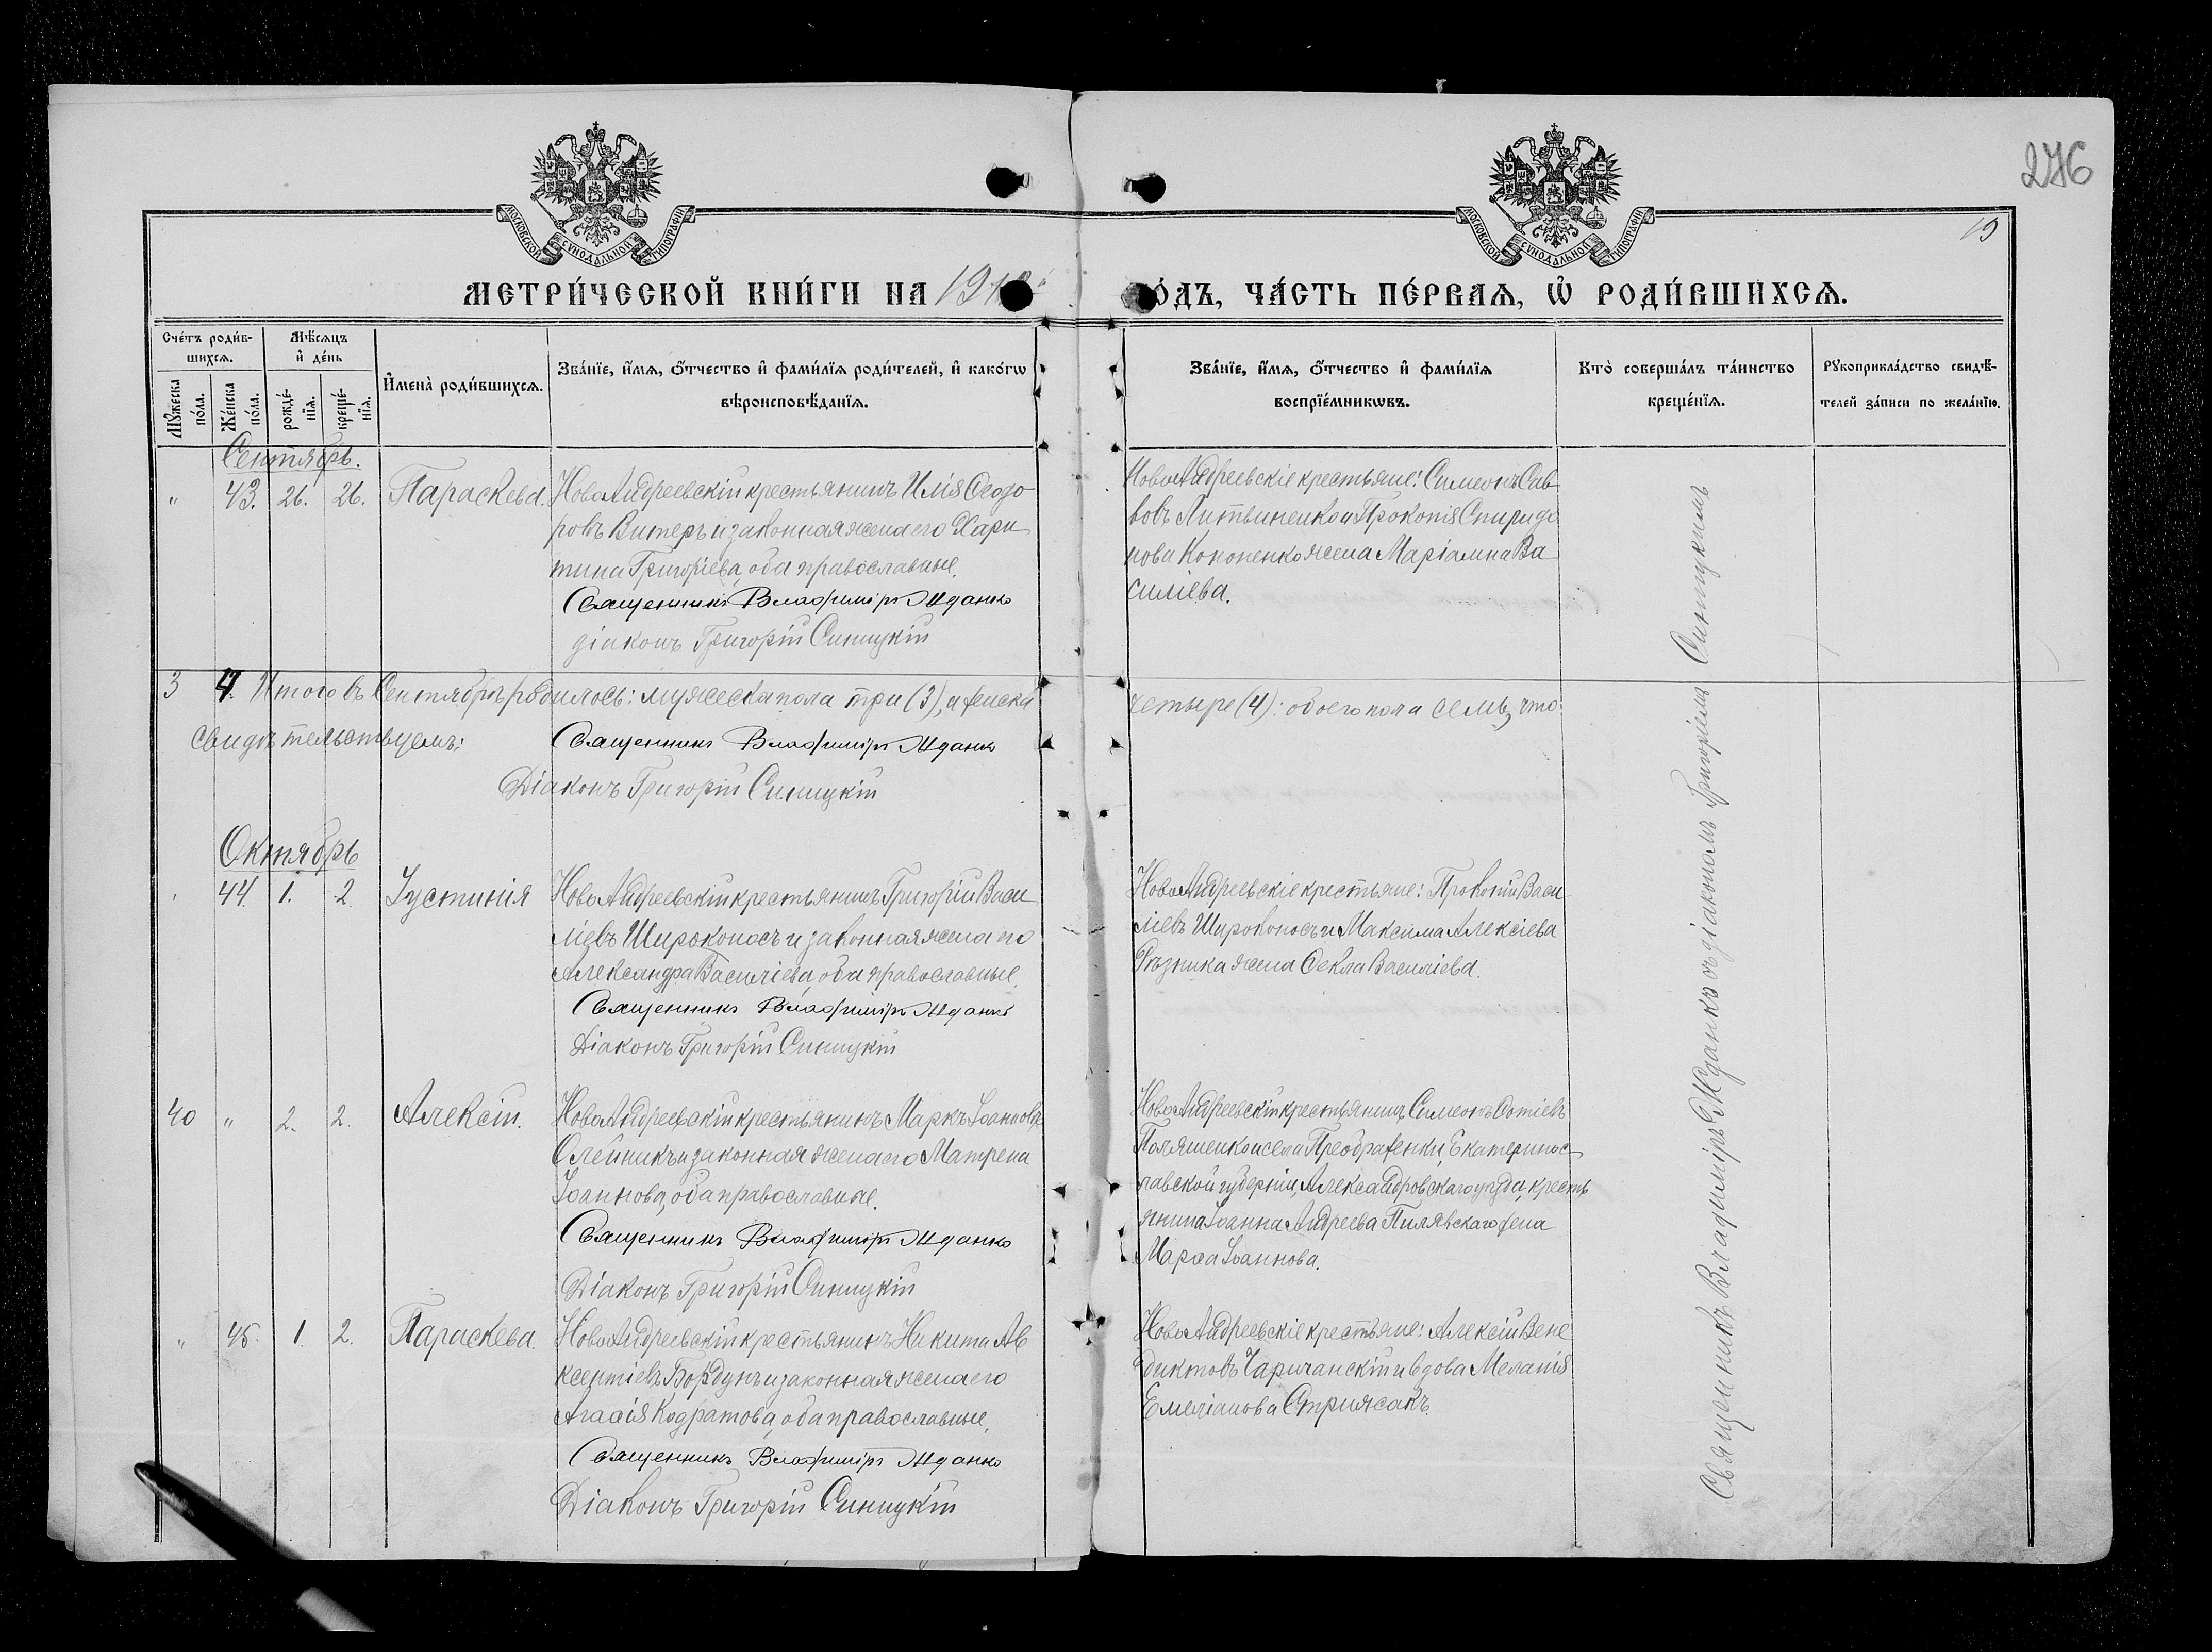 276
19
МОСКОВСКОЙ СѴНОДАЛЬНОЙ ТИПОГРАФІИ
МОСКОВСКОЙ СѴНОДАЛЬНОЙ ТИПОГРАФІИ
МЕТРИ́ЧЕСКОЙ КНИ́ГИ НА 191
О́ДЪ, ЧА́СТЬ ПЕ́РВАѦ, Ѡ҆ РОДИ́ВШИХСѦ.
Сче́тъ роди́в-
шихсѧ.
Мѣ́сѧцъ
и҆ де́нь
Мꙋ́жеска
по́ла.
Же́нска
по́ла.
рожде́-
нїѧ.
креще́-
нїѧ.
И҆мена̀ роди́вшихсѧ.
Зва́нїе, и҆́мѧ, ѻ҆́тчество и҆ фами́лїѧ роди́телей, и҆ како́гѡ
вѣроисповѣ́данїѧ.
Зва́нїе, и҆́мѧ, ѻ҆́тчество и҆ фами́лїѧ
воспрїе́мникѡвъ.
Кто̀ соверша́лъ та́инство
креще́нїѧ.
Рꙋкоприкла́дство свидѣ́-
телей за́писи по жела́нїю.
Сентябрь.
" 43. 26. 26. Параскева.
НовоАндреевскій крестьянинъ Илія Ѳеодо
ровъ Витеръ и законная жена его Хари
тина Григоріева, оба православные.
Священникъ Владиміръ Жданко
діаконъ Григорій Синицкій
НовоАндреевскіе крестьяне: Симеонъ Сав
вовъ Литвиненко и Прокопія Спиридо
нова Кононенко жена Маріамна Ва
силіева.
3 4. Итого въ Сентябрѣ родилось: мужеска пола три (3), а женска
четыре (4): обоего пола семь, что
свидѣтельствуемъ:
Священникъ Владиміръ Жданко
Діаконъ Григорій Синицкій
Октябрь
44 1. 2. Іустинія
НовоАндреевскій крестьянинъ Григорій Васи
ліевъ Широконосъ и законная жена его
Александра Василіева, оба православные.
Священникъ Владиміръ Жданко
Діаконъ Григорій Синицкій
НовоАндреевскіе крестьяне: Прокопій Васи
ліевъ Широконосъ и Максима Алексіева
Рѣзника жена Ѳекла Василіева.
40 " 2. 2. Алексій.
НовоАндреевскій крестьянинъ Маркъ Іоанновъ
Олейникъ и законная жена его Матрена
Іоаннова, оба православные.
Священникъ Владиміръ Жданко
Діаконъ Григорій Синицкій
НовоАндреевскій крестьянинъ Симеонъ Фотіевъ
и села Преображенки, Екатеринос-
лавской губерніи, Александровскаго уѣзда, кресть
янина Іоанна Андреева Пилявскаго жена
Марѳа Іоаннова.
" 45. 1. 2. Параскева.
НовоАндреевскій крестьянинъ Никита Ав
ксентіевъ Бордунъ и законная жена его
Агаѳія Кодратова, оба православные.
Священникъ Владиміръ Жданко
Діаконъ Григорій Синицкій
НовоАндреевскіе крестьяне: Алексій Вене
диктовъ Чаричанскій и вдова Меланія
Емеліанова Стрижакъ.
Священникъ Владиміръ Жданко съ діакономъ Григоріемъ Синицкимъ